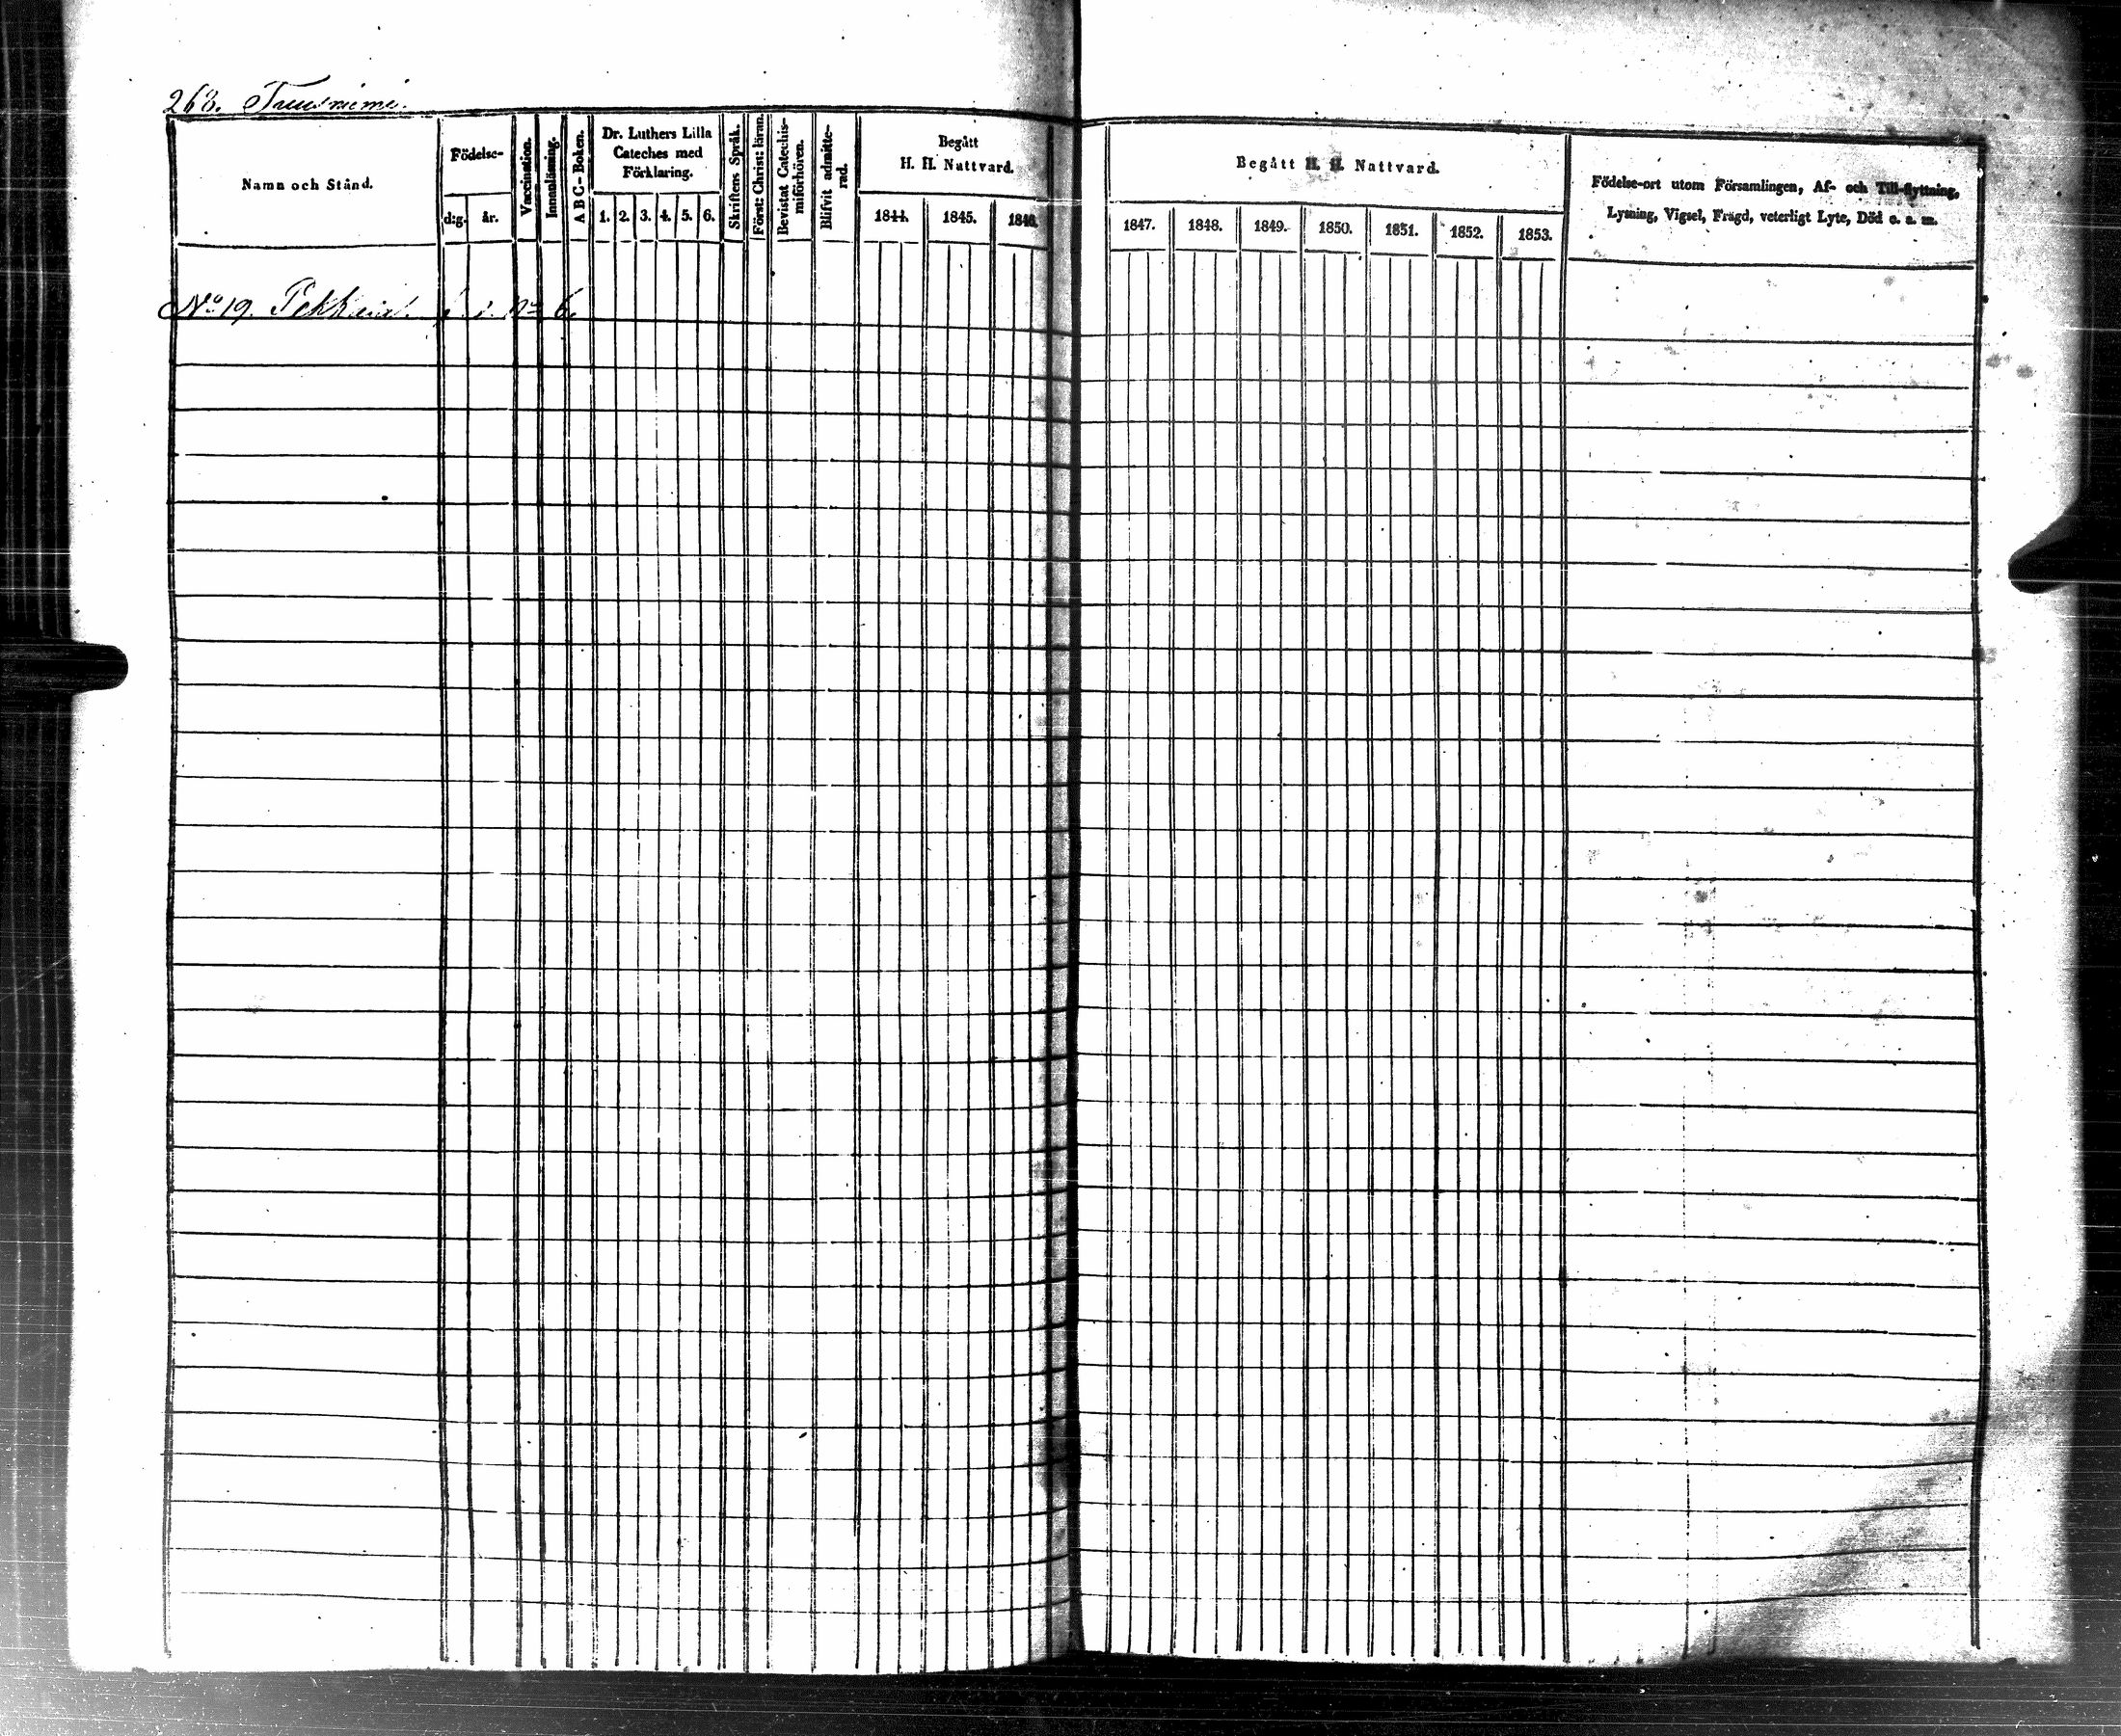 268.
Namn och Stånd.
Födelse-
d:g. år.
Vaccination.
Innanläsning.
A B C - Boken.
Dr. Luthers Lilla
Cateches med
Förklaring.
1. 2. 3. 4. 5. 6.
Skriftens Språk.
Först: Christ: läran.
Bevistat Catechis-
miförhören.
Blifvit admitte-
rad.
Begått
H. H. Nattvard.
1844. 1845. 1846.
Begått H. H. Nattvard.
1847. 1848. 1849. 1850. 1851. 1852. 1853.
Födelse-ort utom Församlingen, Af- och Till-flyttning,
Lysning, Vigsel, Frägd, veterligt Lyte, Död o. s. m.
No 19. No 6.